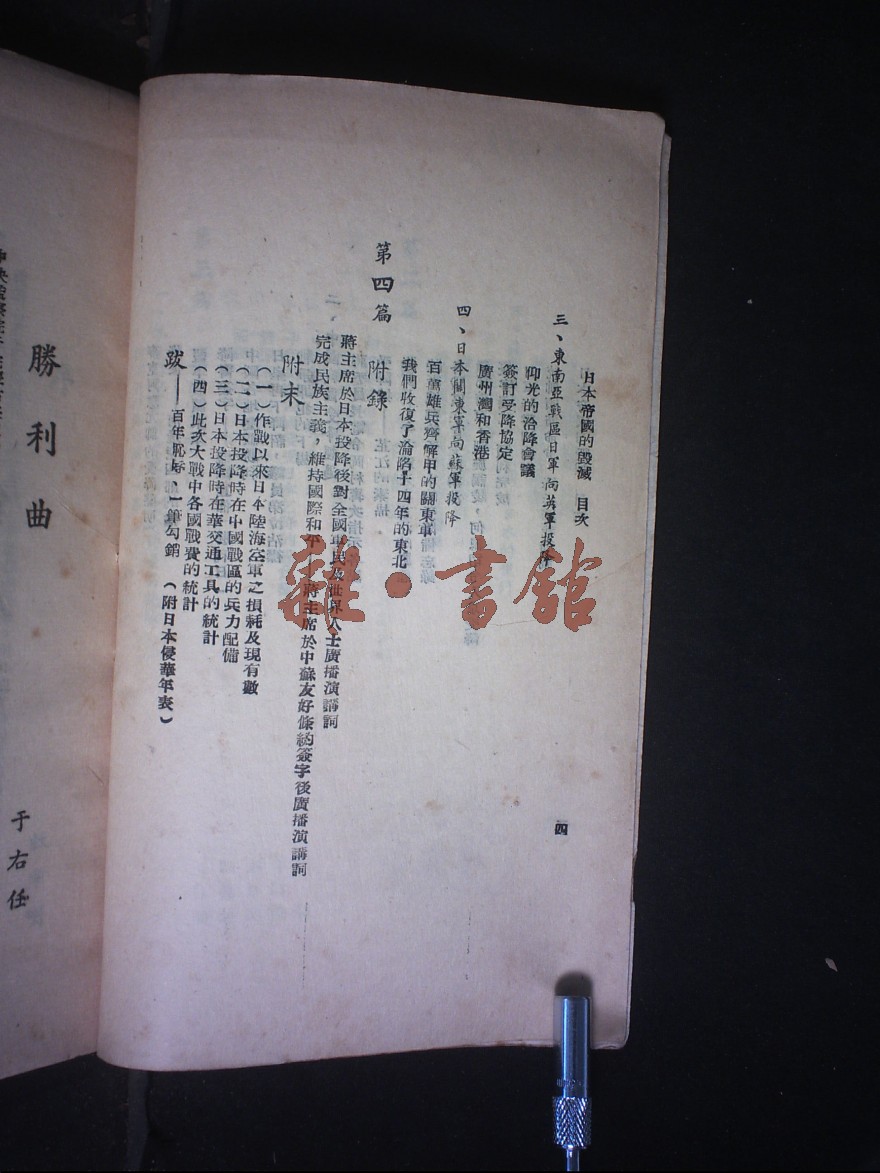 日本帝國的毀滅　目次
三、東南亞戰區日軍向英軍投降
仰光的洽降會議
簽訂受降協定
廣州灣和香港
四、日本關東軍向蘇軍投降
百萬雄兵齊解甲的關東軍
我們收復了淪陷十四年的東北
第四篇　附錄
蔣主席於日本投降後對全國軍民及世界人士廣播演講詞
完成民族主義，維持國際和平——蔣主席於中蘇友好條約簽字後廣播演講詞
附末
（一）作戰以來日本陸海空軍之損耗及現有數
（二）日本投降時在中國戰區的兵力配備
（三）日本投降時在華交通工具的統計
（四）此次大戰中各國戰費的統計
跋——百年恥辱、一筆勾銷　（附日本侵華年表）
四
勝利曲
于右任
雜·書館